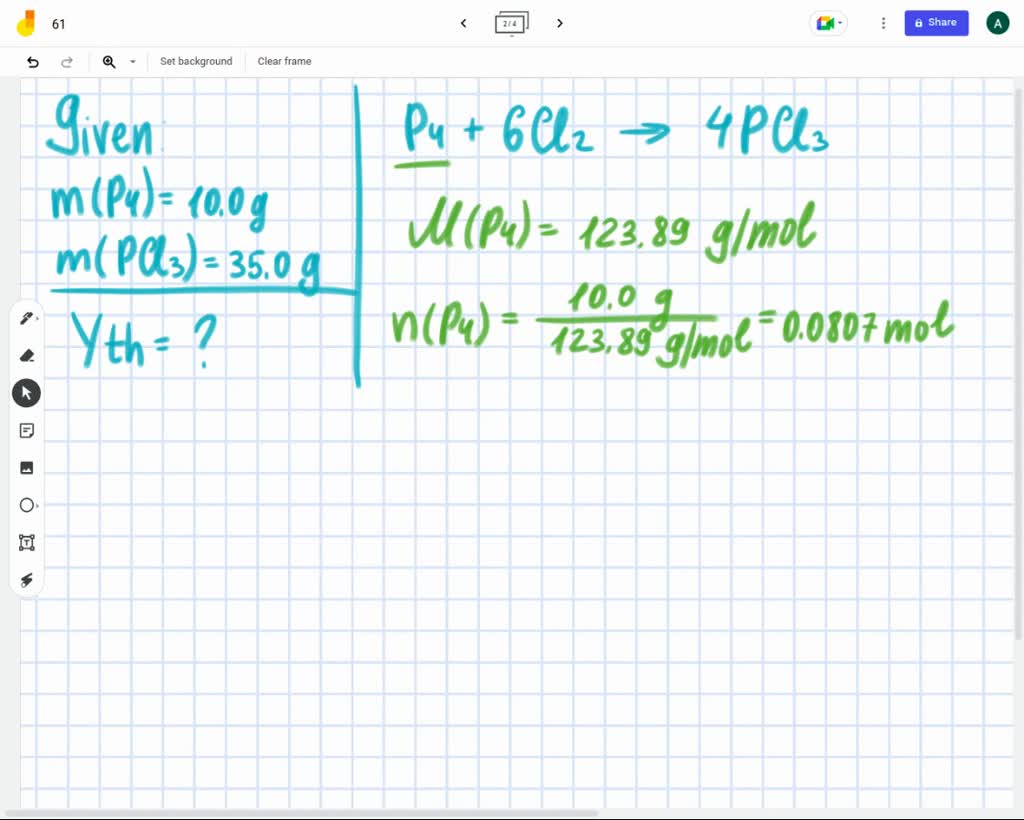 61
2/4
Share
A
Set background
Clear frame
Given:
m(P4) = 10.0 g
m(PCl3) = 35.0 g
Yth = ?
P4 + 6Cl2 → 4PCl3
M(P4) = 123.89 g/mol
n(P4) = 10.0 g / 123.89 g/mol = 0.0807 mol